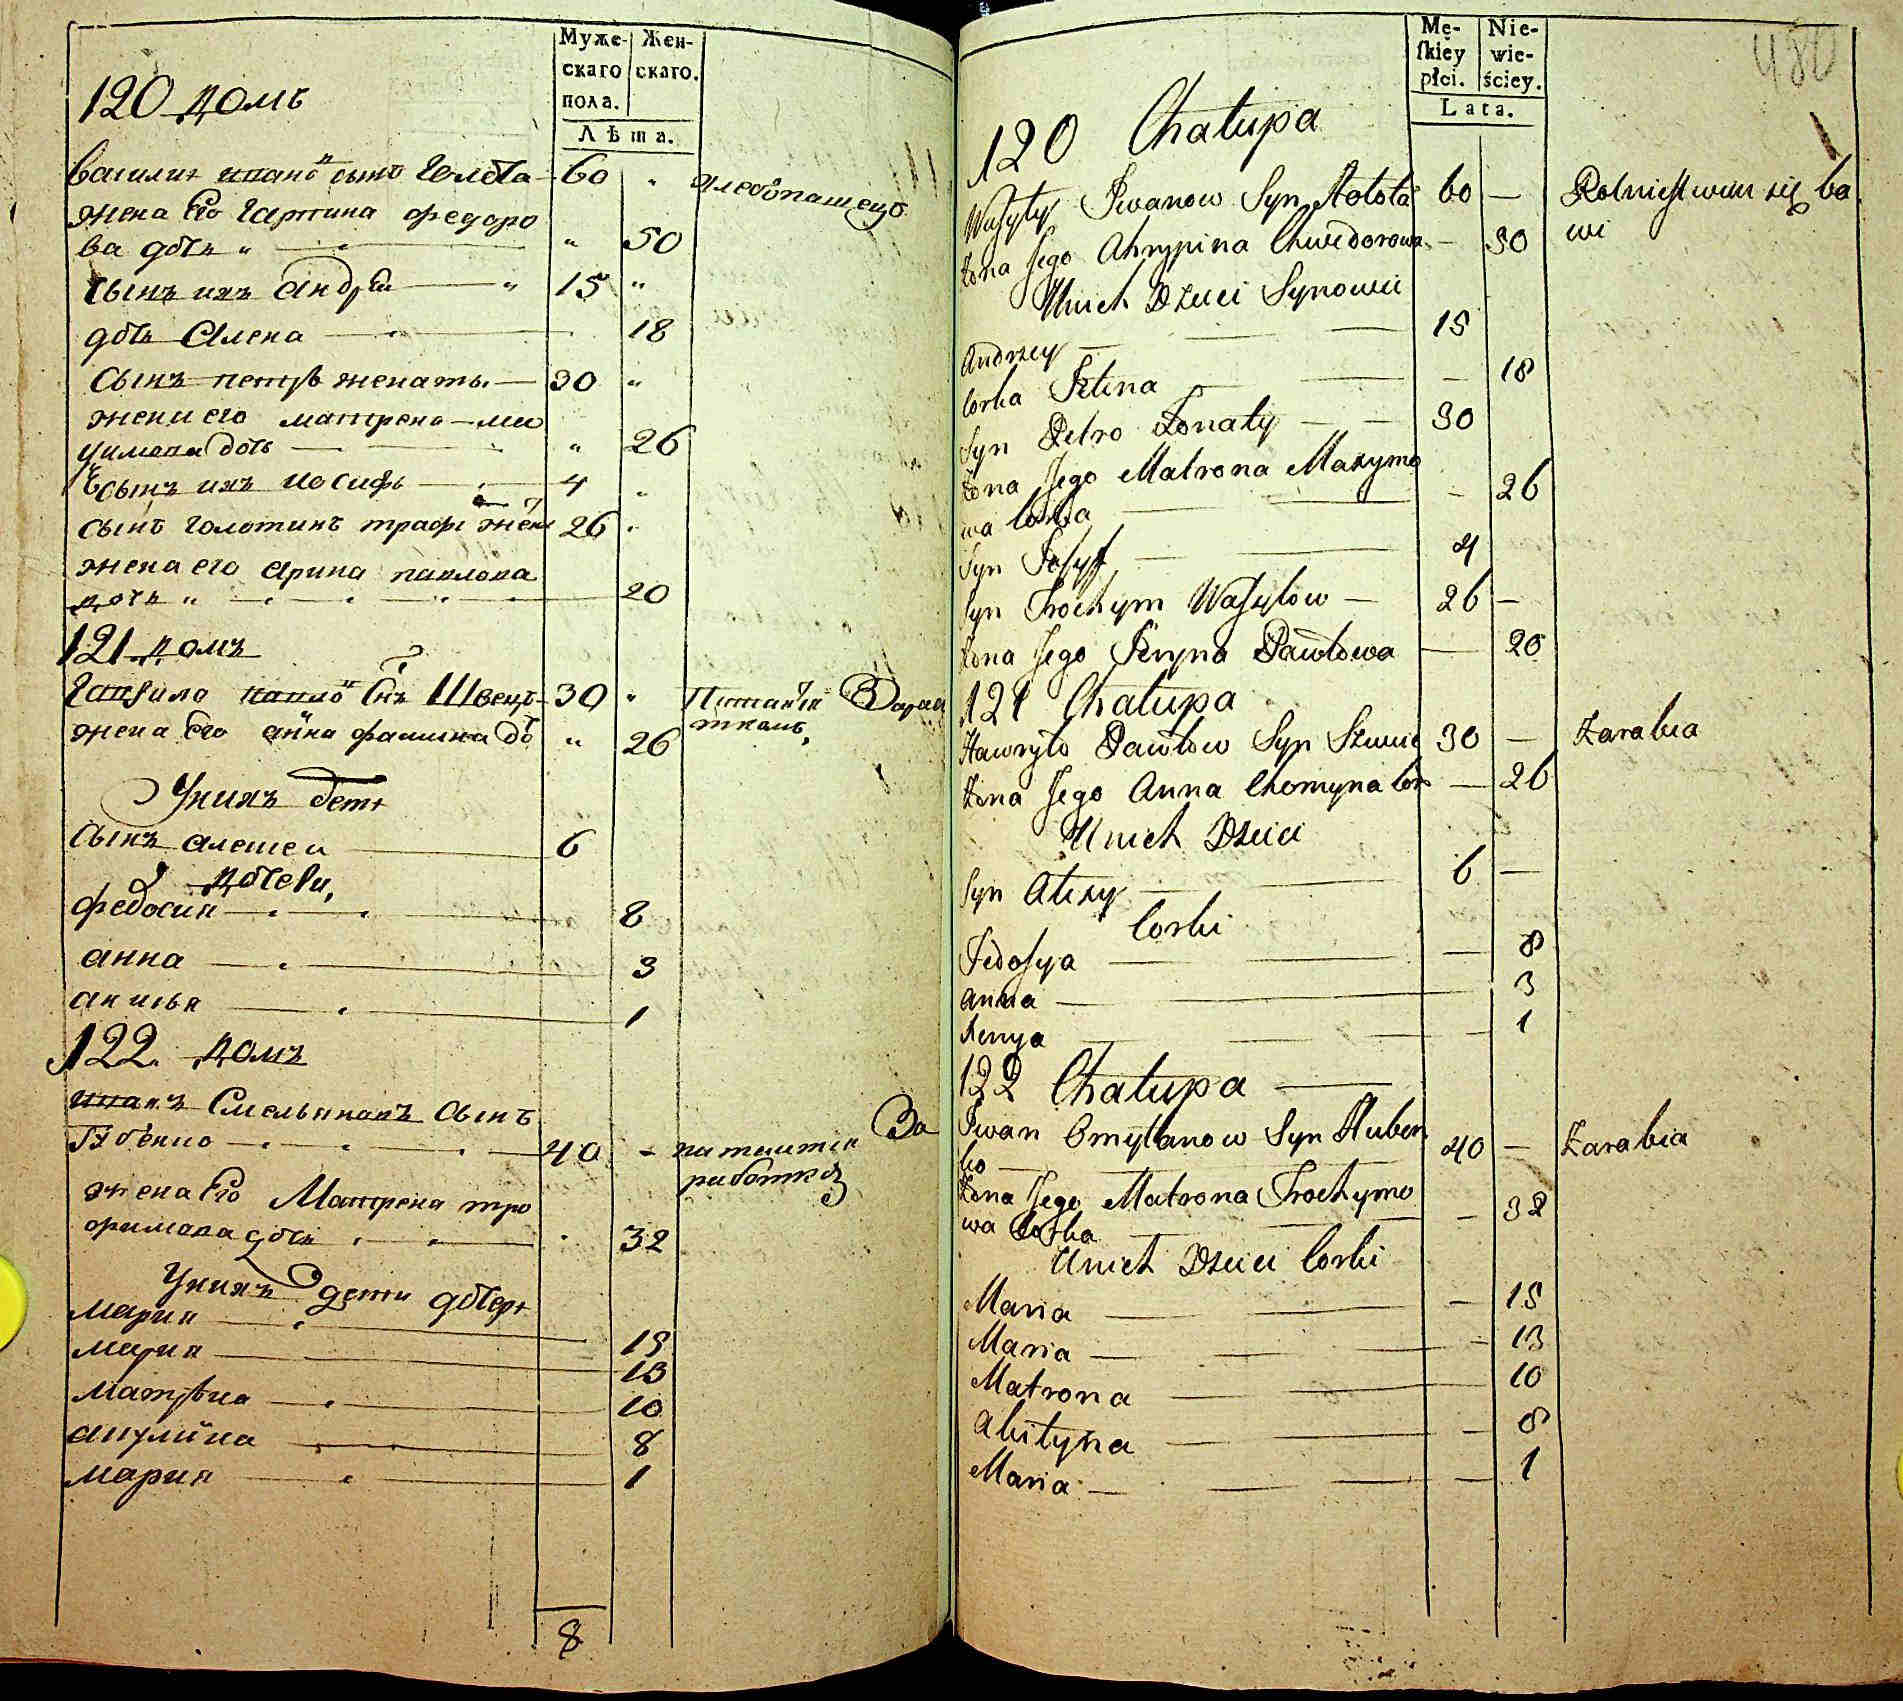 Муже- Жен-
скаго скаго.
пола.
Лѣта.
120 домъ
Василиі ивано сынъ Голота 60 "
жена Его Гапкина федоро
ва дочь " " 50
сынъ ихъ андреи " 15 "
дочь Олена 18
Сынъ петръ женаты 30 "
жена его матрена ма
ѯимова дочь " 26
сынъ ихъ иосифъ 4 "
сынъ голотинъ трофі жена 26 "
жена его арина павлова
дочь " 20
121 домъ
Гаврило павло снъ Швецъ 30 " Питается Зара
жена Его анна фомина до " 26 ткомъ
Унихъ дети
Сынъ алеѯеи 6
дочери
федосия 8
анна 3
аксинья 1
122 домъ
иванъ Смельяновъ Сынъ
40 - питается За
работкоз
жена Его Матрена тро
фимова дочь 32
Унихъ дети дочери
мария 15
мария 13
матрона 10
акулина 8
мария 1
8
480
Mę- Nie-
skiey wie-
płci. ściey.
Lata.
120 Chałupa
Wasyly Iwanow Syn Hołota 60 — Rolnictwem się ba
wi
Żona Jego Ahrypina Chwedorowa — 50
Unich Dzieci Synowie
Andrzey 15
Corka Helena — 18
Syn Petro Żonaty 30
Żona Jego Matrona Maxymo
wa Corka — 26
Syn Josyf 4
Syn Trochym Wasylow — 26 —
Żona Jego Jryna Pawłowa — 20
121 Chałupa
Hawryło Pawłow Syn Szwiec 30 — Zarabia
Żona Jego Anna Chomyna Cor — 26
Unich Dzieci
Syn Alexy 6 —
Corki
Fedosya — 8
Anna 3
Xenya 1
122 Chałupa
Iwan Omylanow Syn Huben
ko 40 — Zarabia
Żona Jego Matrona Trochymo
wa Corka — 32
Unich Dzieci Corki
Maria — 15
Maria — 13
Matrona 10
Akityna — 8
Maria — 1